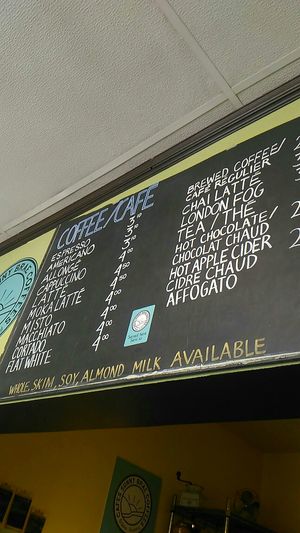 COFFEE/CAFE
ESPRESSO
AMERICANO
ALLONGE
CAPPUCCINO
LATTE
MOKA LATTE
MISTO
MACCHIATO
CORTADO
FLAT WHITE
BREWED COFFEE/
CAFE REGULIER
CHAI LATTE
LONDON FOG
TEA / THE
HOT CHOCOLATE/
CHOCOLAT CHAUD
HOT APPLE CIDER
CIDRE CHAUD
AFFOGATO
WHOLE, SKIM, SOY, ALMOND MILK AVAILABLE